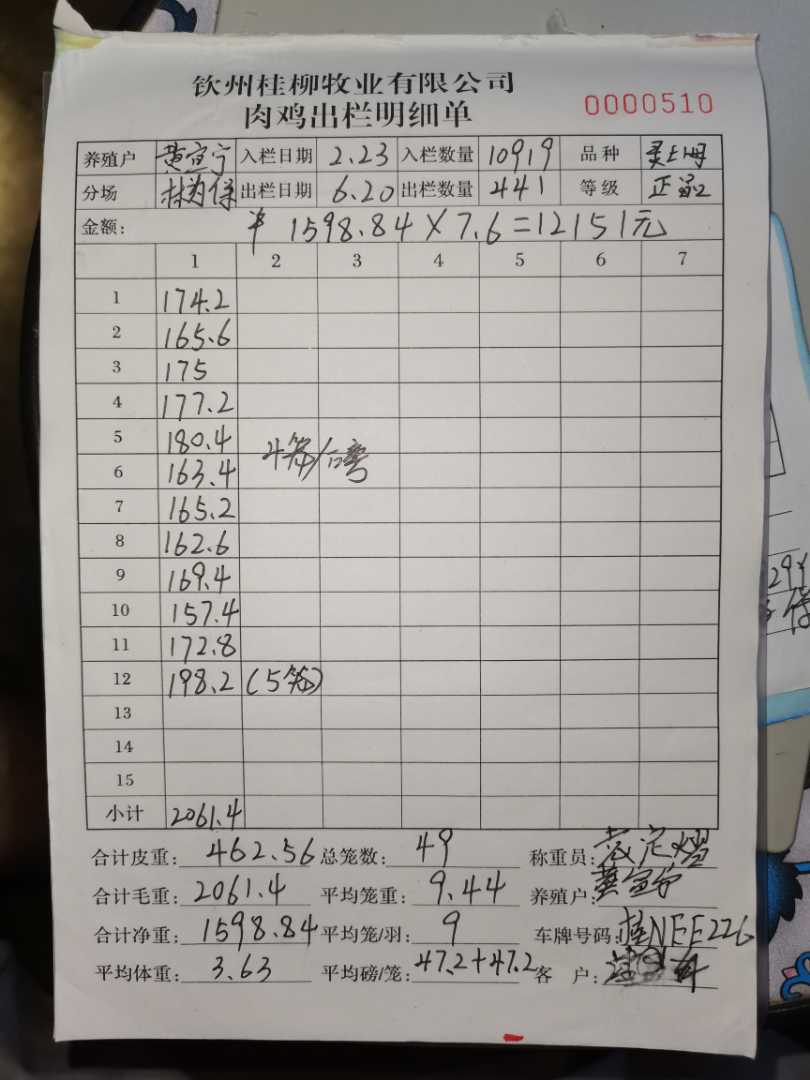 钦州桂柳牧业有限公司
肉鸡出栏明细单
0000510
养殖户 黄宣宁 入栏日期 2.23 入栏数量 10919 品种
分场 出栏日期 6.20 出栏数量 441 等级 正
金额: ¥ 1598.84×7.6=12151元
1 2 3 4 5 6 7
1 174.2
2 165.6
3 175
4 177.2
5 180.4
4笼/
6 163.4
7 165.2
8 162.6
9 169.4
10 157.4
11 172.8
12 198.2 (5笼)
13
14
15
小计 2061.4
合计皮重: 462.56 总笼数: 49 称重员:
合计毛重: 2061.4 平均笼重: 9.44 养殖户: 黄宣宁
合计净重: 1598.84 平均笼/羽: 9 车牌号码: 桂NEE226
平均体重: 3.63 平均磅/笼: 47.2+47.2 客户: